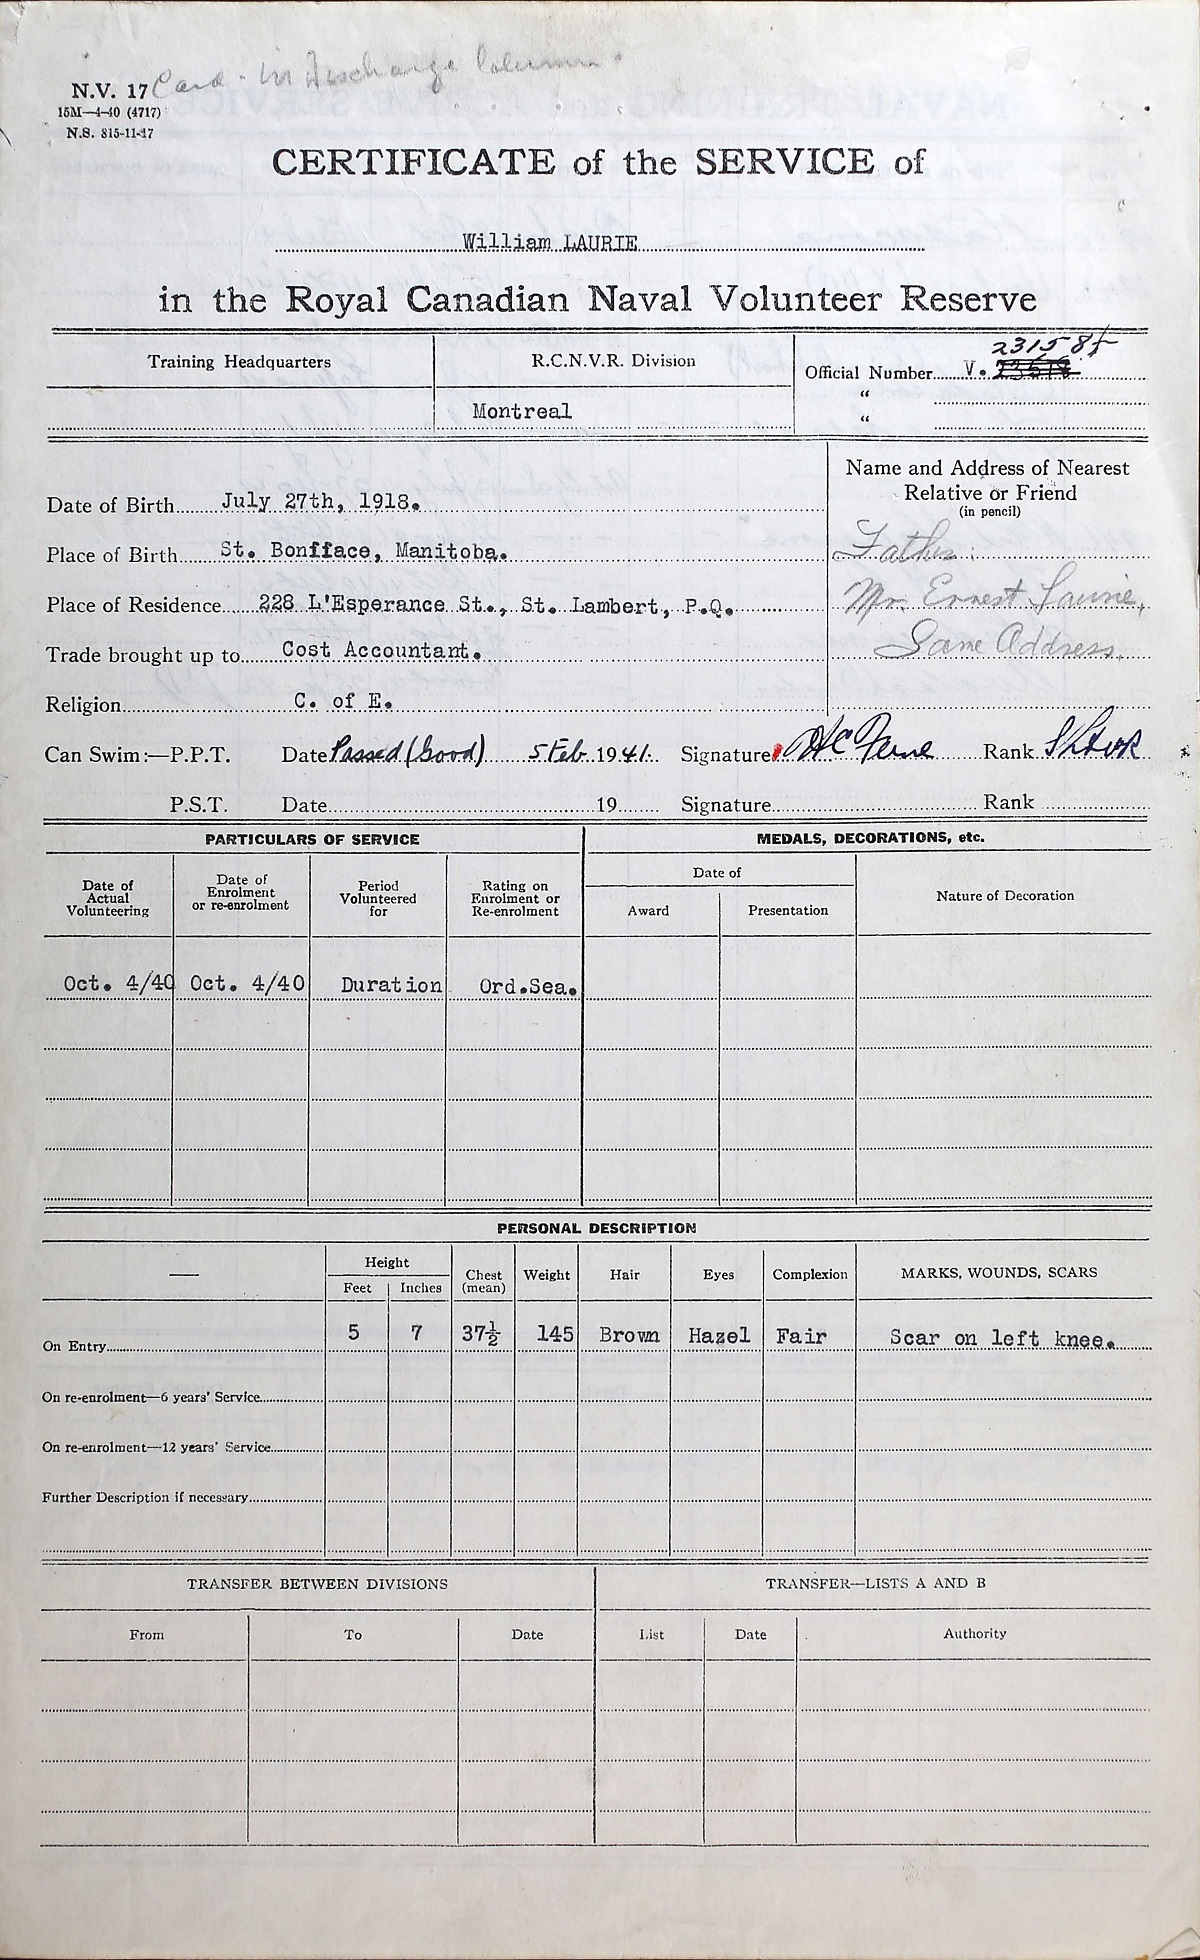 N.V. 17 Card - in Discharge Column
15M—4-40 (4717)
N.S. 815-11-17
CERTIFICATE of the SERVICE of
William LAURIE
in the Royal Canadian Naval Volunteer Reserve
Training Headquarters R.C.N.V.R. Division Official Number V.
Montreal “
“
Name and Address of Nearest
Relative or Friend
(in pencil)
Date of Birth July 27th, 1918.
Place of Birth St. Boniface, Manitoba. Father:
Place of Residence 228 L'Esperance St., St. Lambert, P.Q. Mr. Ernest Laurie,
Trade brought up to Cost Accountant. Same Address.
Religion C. of E.
Can Swim:—P.P.T. Date Passed (Good) 5 Feb 1941. Signature Rank
P.S.T. Date 19 Signature Rank
PARTICULARS OF SERVICE MEDALS, DECORATIONS, etc.
Date of Actual Volunteering Date of Enrolment or re-enrolment Period Volunteered for Rating on Enrolment or Re-enrolment Date of Nature of Decoration
Award Presentation
Oct. 4/40 Oct. 4/40 Duration Ord.Sea.
PERSONAL DESCRIPTION
— Height Chest (mean) Weight Hair Eyes Complexion MARKS, WOUNDS, SCARS
Feet Inches
On Entry 5 7 37½ 145 Brown Hazel Fair Scar on left knee.
On re-enrolment—6 years' Service
On re-enrolment—12 years' Service
Further Description if necessary
TRANSFER BETWEEN DIVISIONS TRANSFER—LISTS A AND B
From To Date List Date Authority